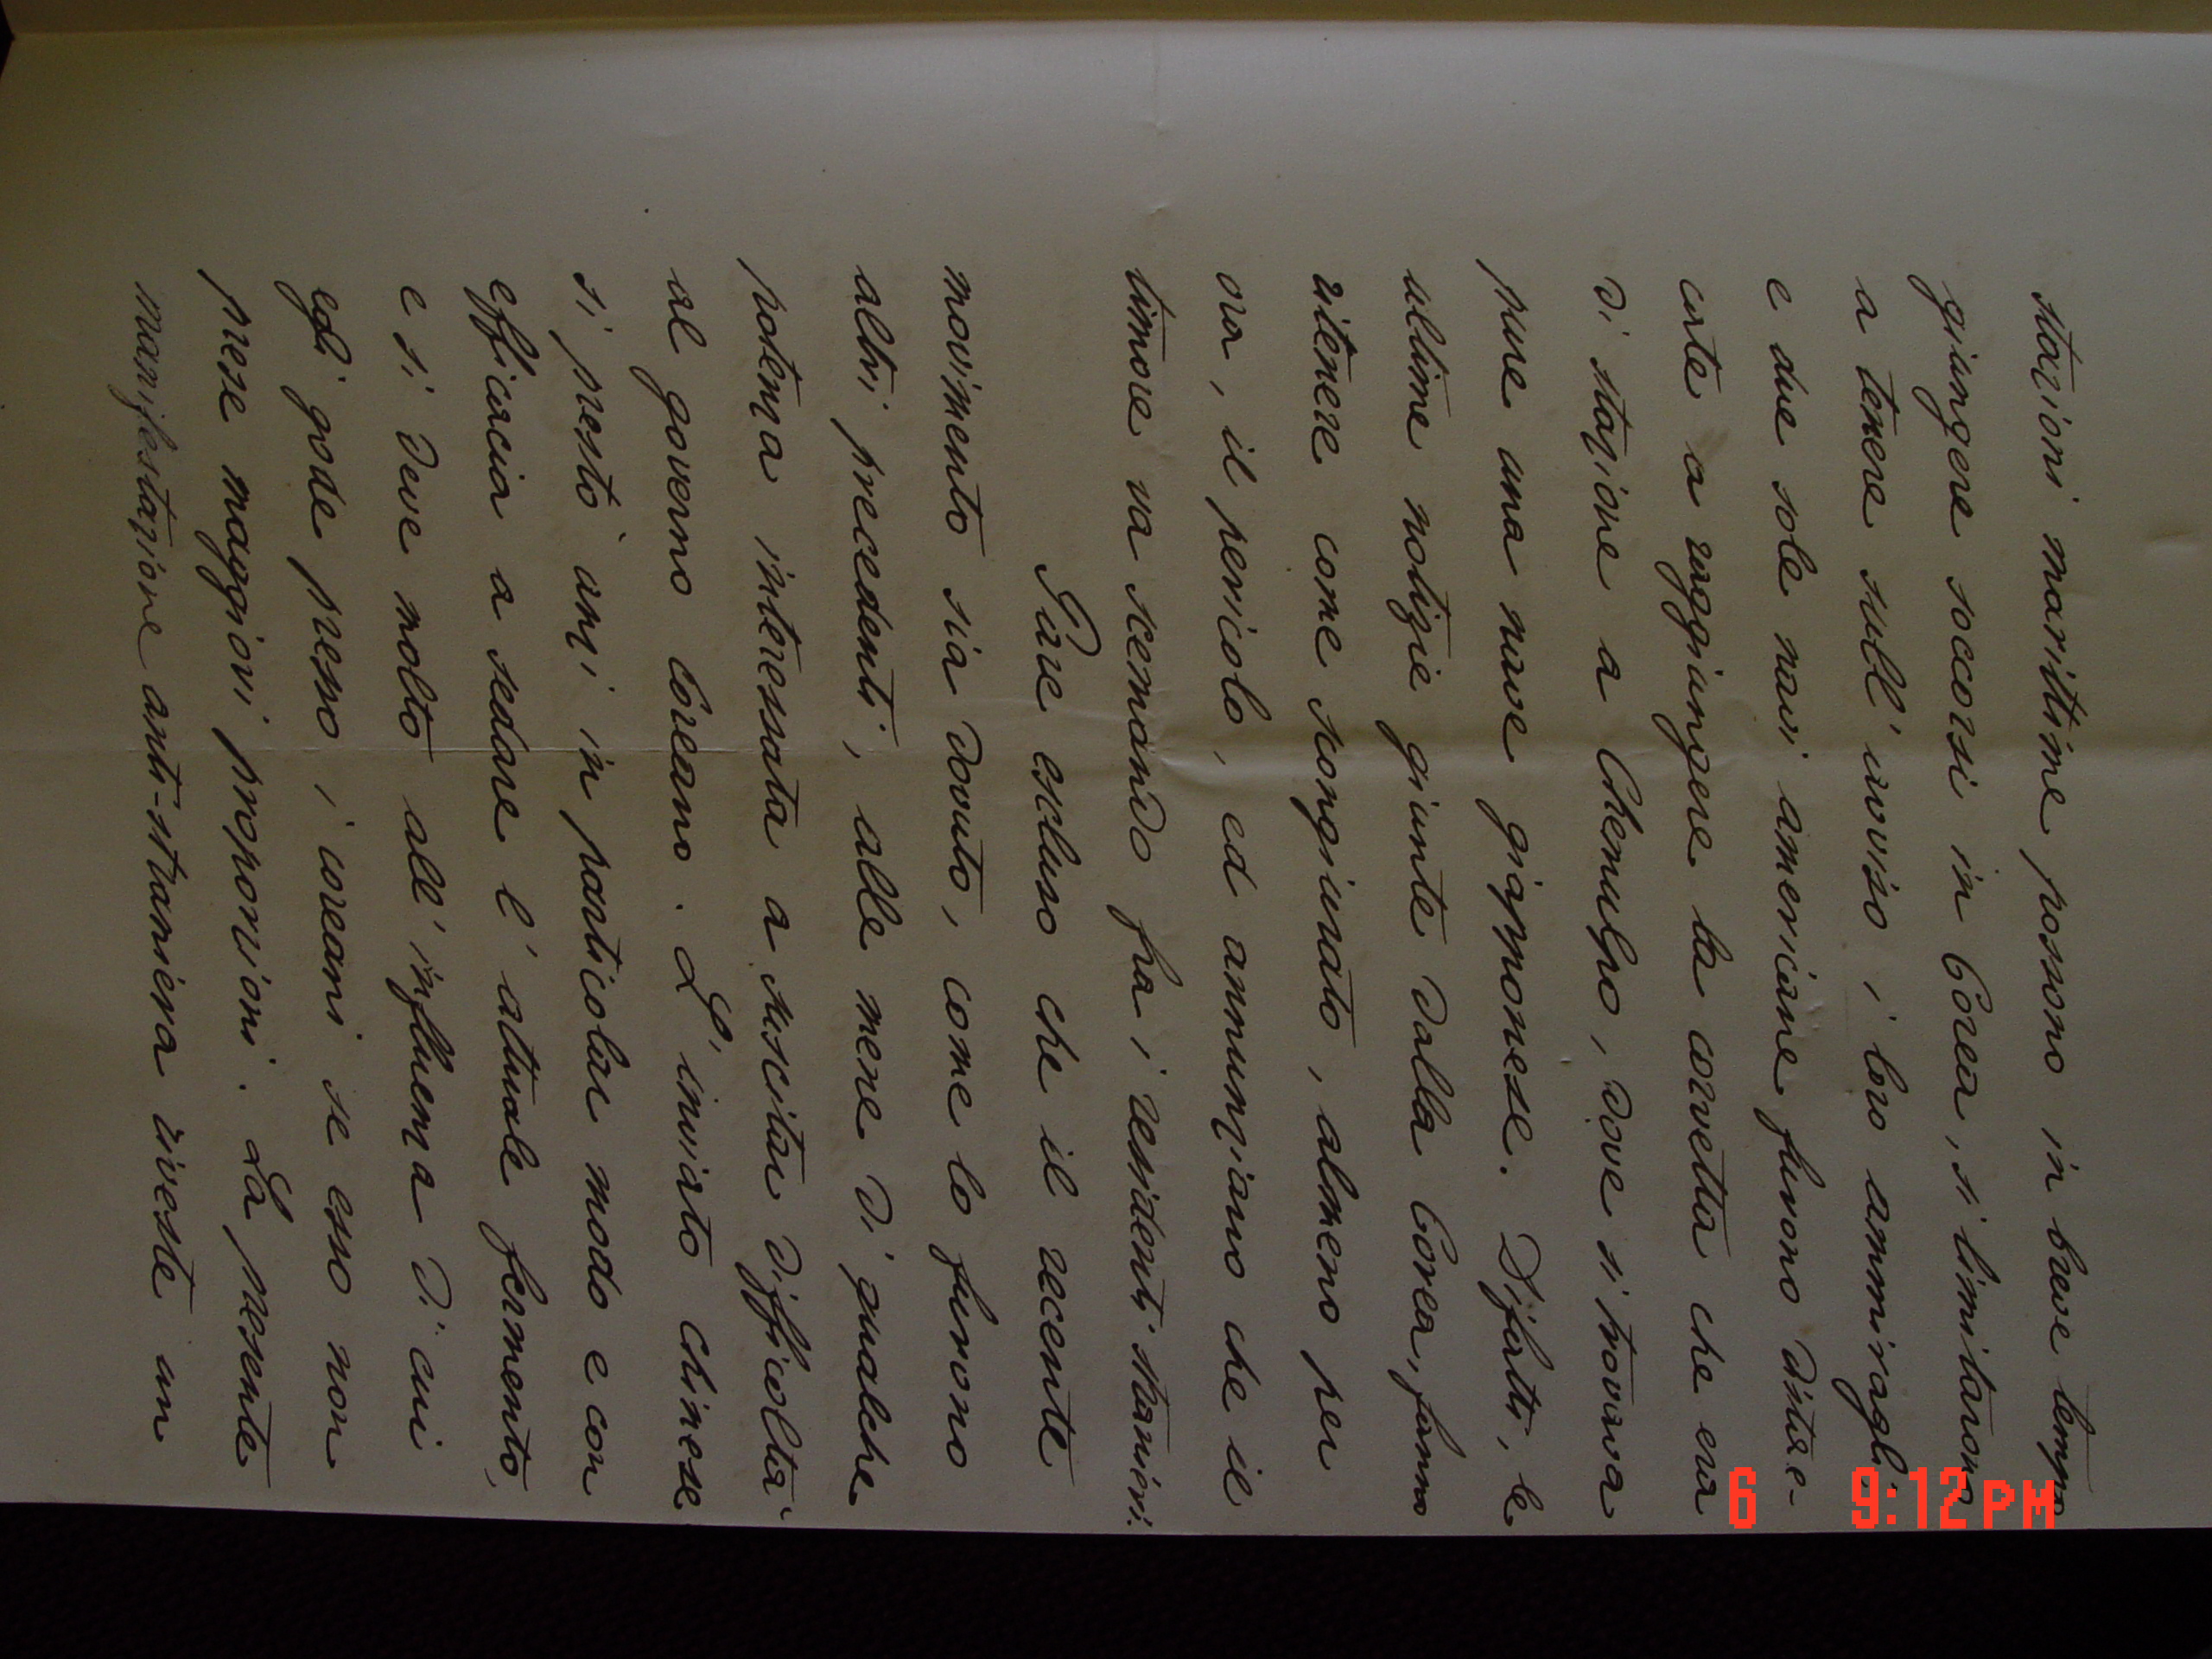 stazioni marittime possono in breve tempo
giungere soccorsi in Corea, si limitarono
a tenere sull'avviso i loro ammiragli
e due sole navi americane furono dirre-
corte a raggiungere la corvetta che era
di stazione a Chemulpo, dove si trovava
pure una nave giapponese. Difatti, le
ultime notizie giunte dalla Corea, fanno
ritenere come scongiurato, almeno per
ora, il pericolo, ed annunziano che il
timore va scemando fra i residenti stranieri.
Pare escluso che il recente
movimento sia dovuto, come lo furono
altri precedenti, alle mene di qualche
potenza interessata a suscitar difficoltà
al governo Coreano. L'inviato chinese
si prestò anzi in particolar modo e con
efficacia a sedare l'attuale fermento,
e si deve molto all'influenza di cui
egli gode presso i coreani se esso non
prese maggiori proporzioni. La presente
manifestazione anti-straniera riveste un
6 9:12 PM